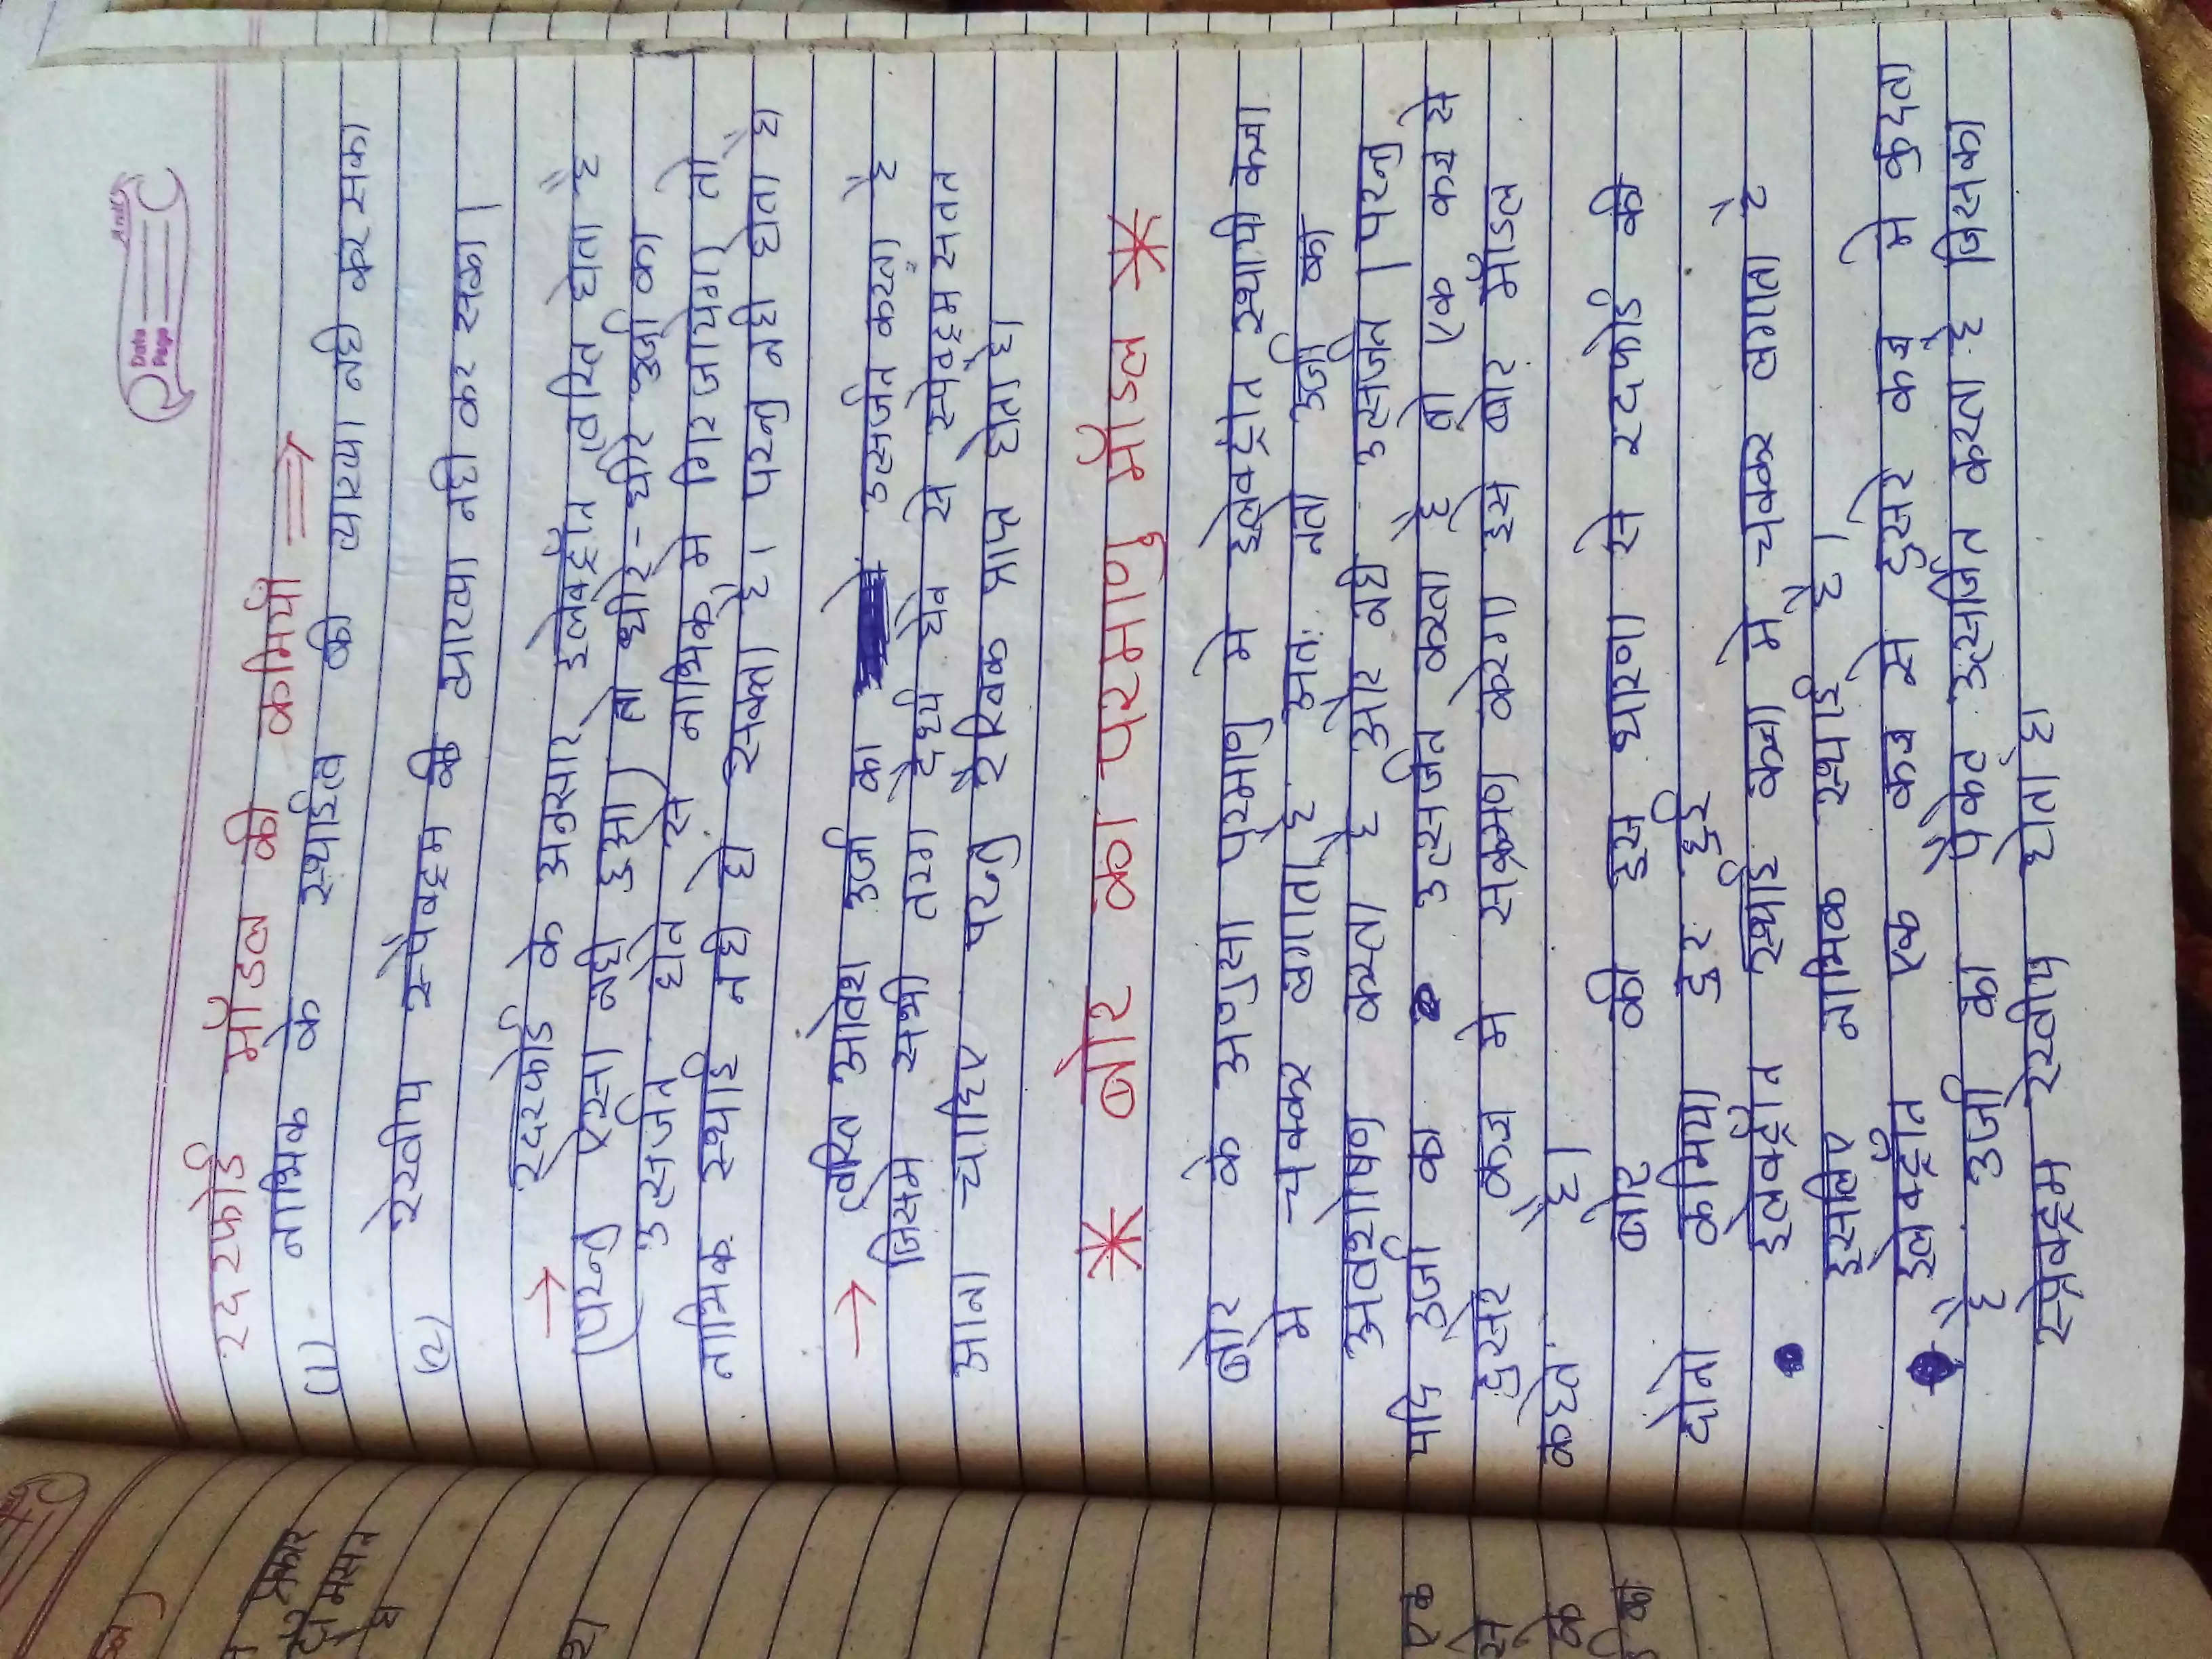 Date
Page
रदरफोर्ड मॉडल की कमियाँ ⇒
(1) नाभिक के स्थाईत्व की व्याख्या नही कर सका
(2) रेखीय स्पेक्ट्रम की व्याख्या नही कर सका।
→ रदरफोर्ड के अनुसार इलेक्ट्रॉन त्वरित होता है
(परन्तु एसा नही हुआ) तो धीरे-धीरे उर्जा का
उत्सर्जन होने से नाभिक मे गिर जायेगा तो
नाभिक स्थाई नही हो सकता है। परन्तु नही होता है
→ त्वरित आवेश उर्जा का उत्सर्जन करता है
जिसमे सभी तरंग दैर्ध्य होने से स्पेक्ट्रम सतत
आना चाहिए परन्तु रैखिक प्राप्त होता है।
* बोर का परमाणु मॉडल *
बोर के अणुसा परमाणु मे इलेक्ट्रान स्थायी कक्षा
मे चक्कर लगाता है अतः नतो उर्जा का
अवशोषण करता है ओर नही उत्सर्जन। परन्तु
यदि उर्जा का उत्सर्जन करता है तो एक कक्ष से
दुसरे कक्ष मे सक्रमण करेगा इसे बोर मॉडल
कहते है।
बोर की इस धारणा से रदरफोर्ड की
दोनो कमिया दुर हुई
• इलेक्ट्रॉन स्थाई कक्षा मे चक्कर लगाता है
इसलिए नाभिक स्थाई है।
• इलेक्ट्रॉन एक कक्ष से दुसरे कक्ष मे कुदता
है उर्जा का पैकेट उत्सर्जित करता है जिसका
स्पेक्ट्रम रेखीय होता है।